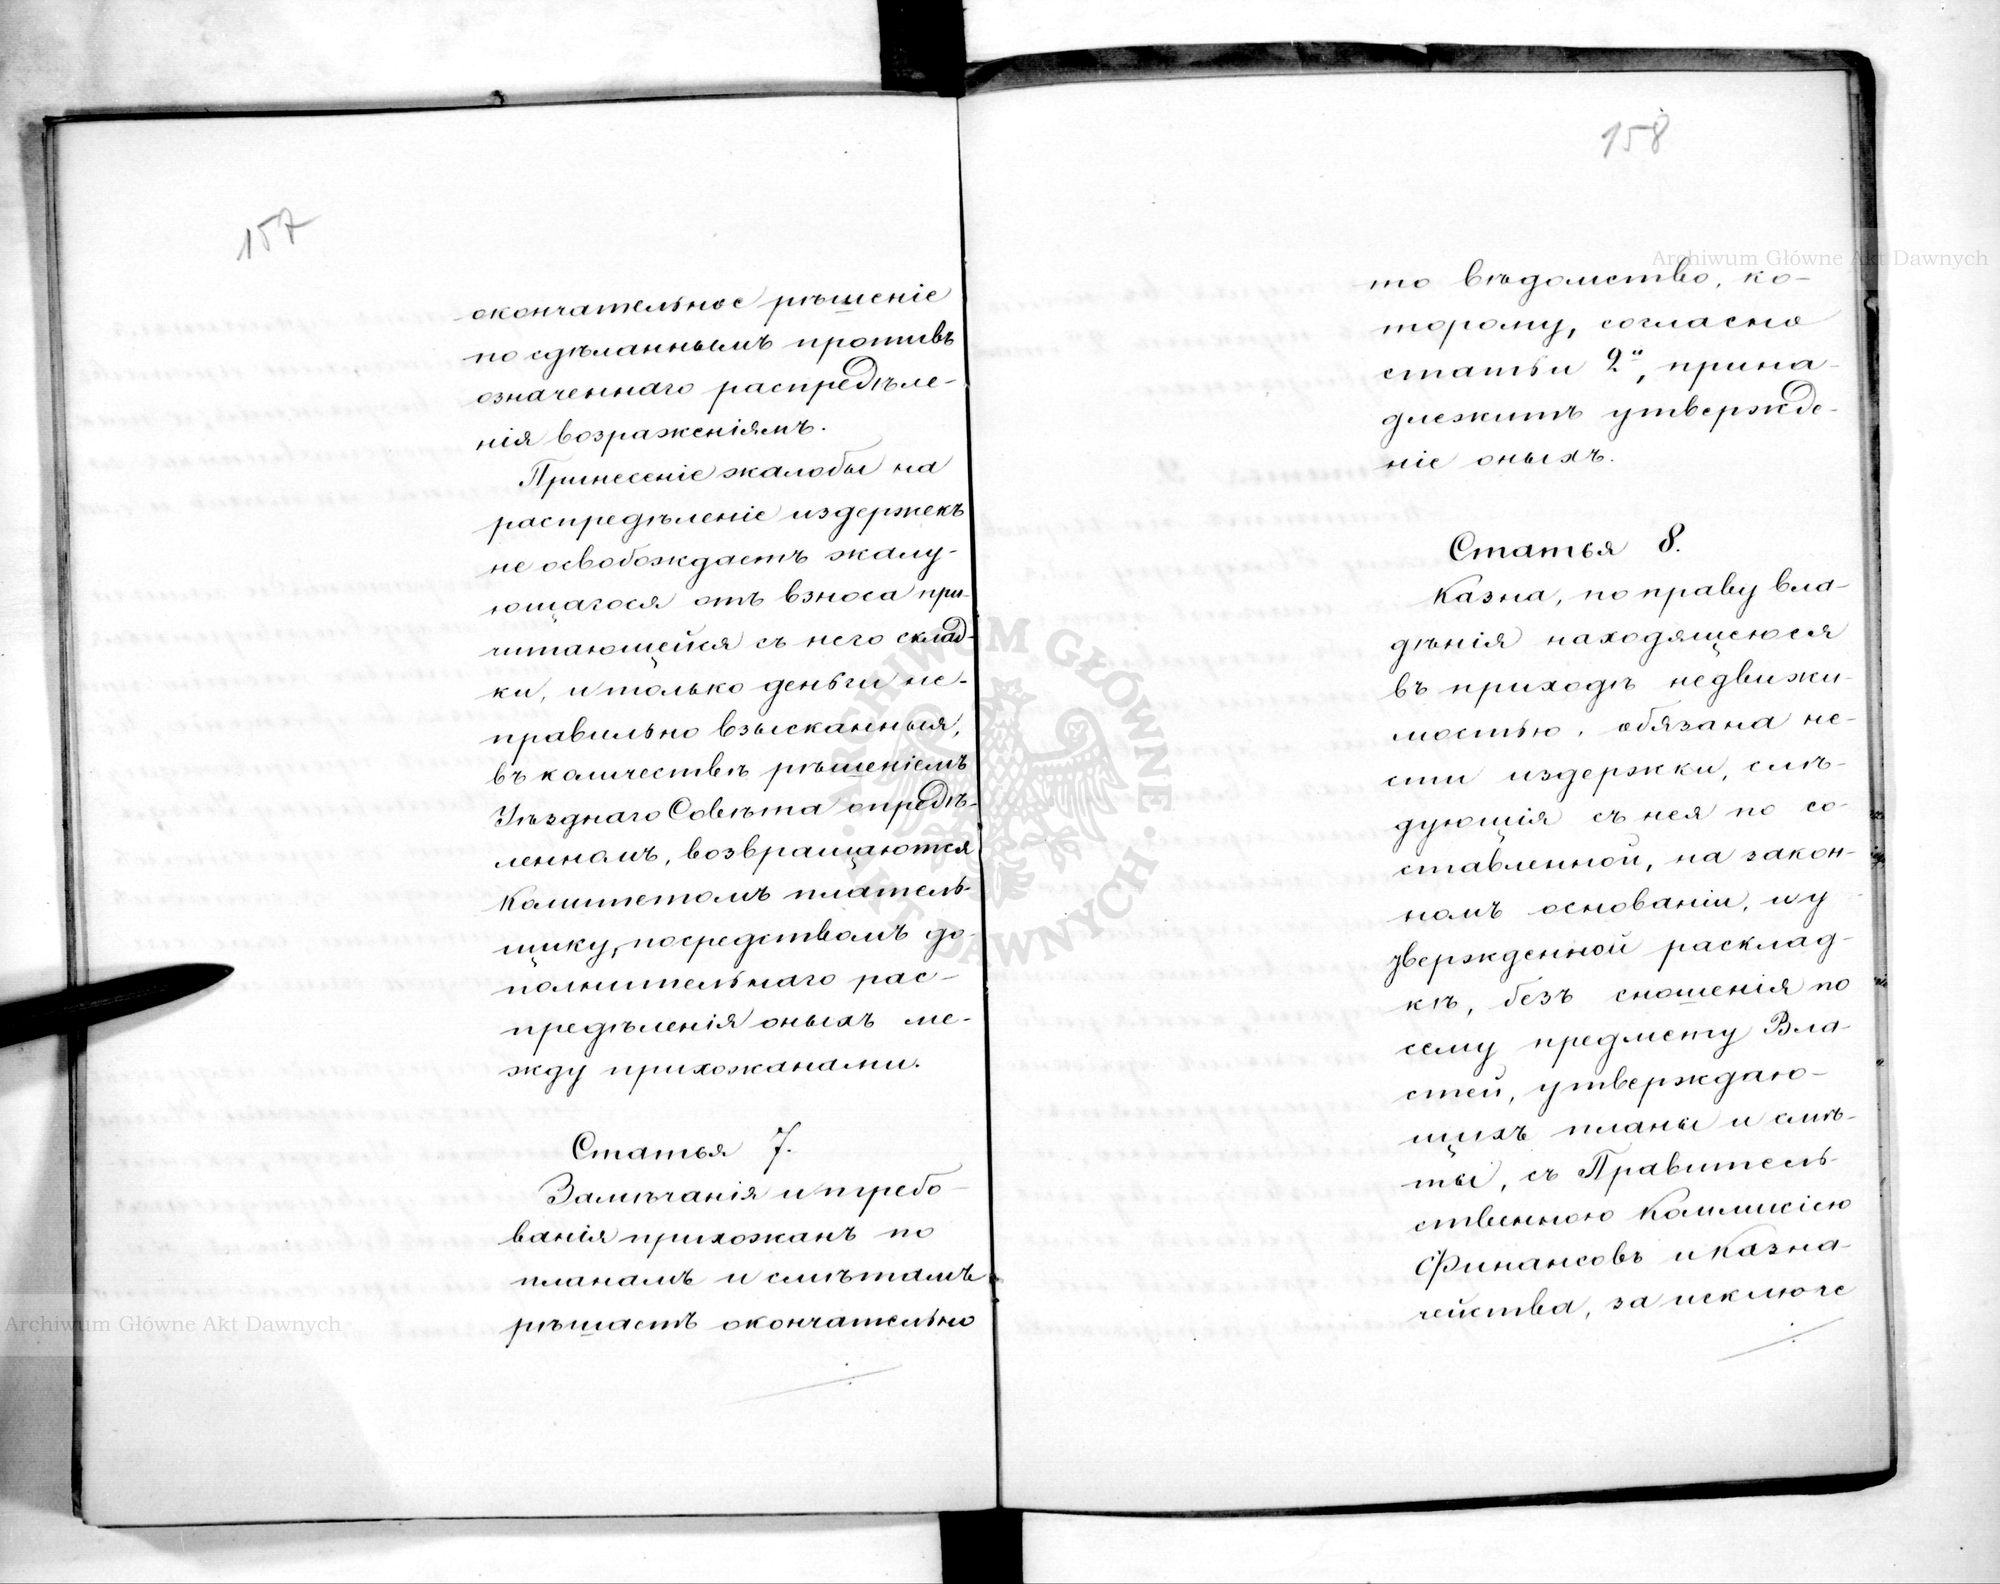 157
окончательное рѣшеніе
по сдѣланнымъ противъ
означеннаго распредѣле-
нія возраженіямъ.
Принесеніе жалобы на
распредѣленіе издержекъ
не освобождаетъ жалу-
ющагося отъ взноса при-
читающейся съ него склад-
ки, и только деньги не-
правильно взысканныя,
въ количествѣ рѣшеніемъ
Уѣзднаго Совѣта опредѣ-
ленномъ, возвращаются
Комитетомъ платель-
щику, посредствомъ до-
полнительнаго рас-
предѣленія оныхъ ме-
жду прихожанами.
Статья 7.
Замѣчанія и требо-
ванія прихожанъ по
планамъ и смѣтамъ
рѣшаетъ окончательно
158
то вѣдомство, ко-
торому, согласно
статьи 2й, прина-
длежитъ утвержде-
ніе оныхъ.
Статья 8.
Казна, по праву вла-
дѣнія находящеюся
въ приходѣ недвижи-
мостью, обязана не-
сти издержки, слѣ-
дующія съ нея по со-
ставленной, на закон-
номъ основаніи, и у
твержденной расклад-
кѣ, безъ сношенія по
сему предмету Вла-
стей, утверждаю-
щихъ планы и смѣ-
ты, съ Правитель-
ственною Коммисіею
Финансовъ и Казна-
чейства, за исключе
Archiwum Główne Akt Dawnych
ARCHIWUM GŁÓWNE AKT DAWNYCH
Archiwum Główne Akt Dawnych